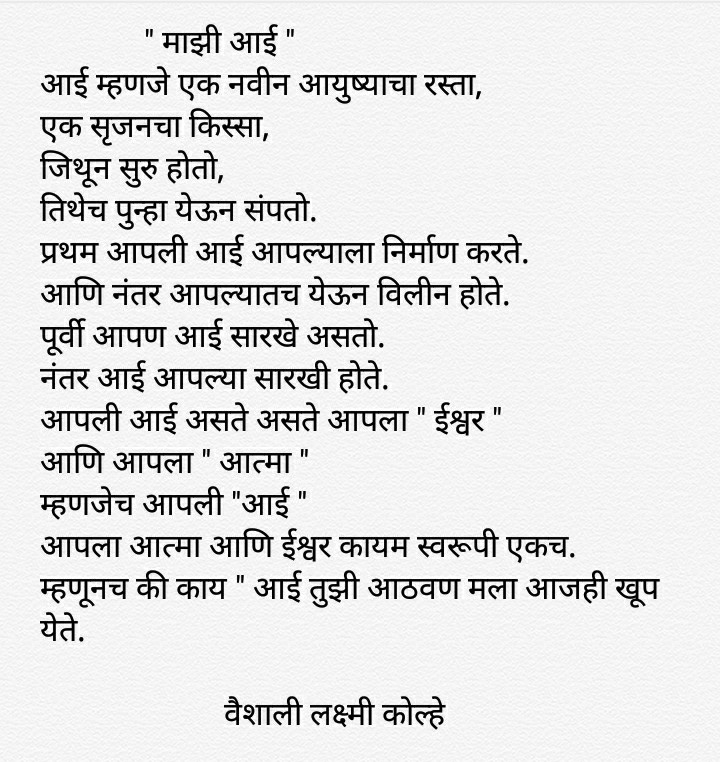 " माझी आई "
आई म्हणजे एक नवीन आयुष्याचा रस्ता,
एक सृजनचा किस्सा,
जिथून सुरु होतो,
तिथेच पुन्हा येऊन संपतो.
प्रथम आपली आई आपल्याला निर्माण करते.
आणि नंतर आपल्यातच येऊन विलीन होते.
पूर्वी आपण आई सारखे असतो.
नंतर आई आपल्या सारखी होते.
आपली आई असते असते आपला " ईश्वर "
आणि आपला " आत्मा "
म्हणजेच आपली "आई "
आपला आत्मा आणि ईश्वर कायम स्वरूपी एकच.
म्हणूनच की काय " आई तुझी आठवण मला आजही खूप
येते.
वैशाली लक्ष्मी कोल्हे